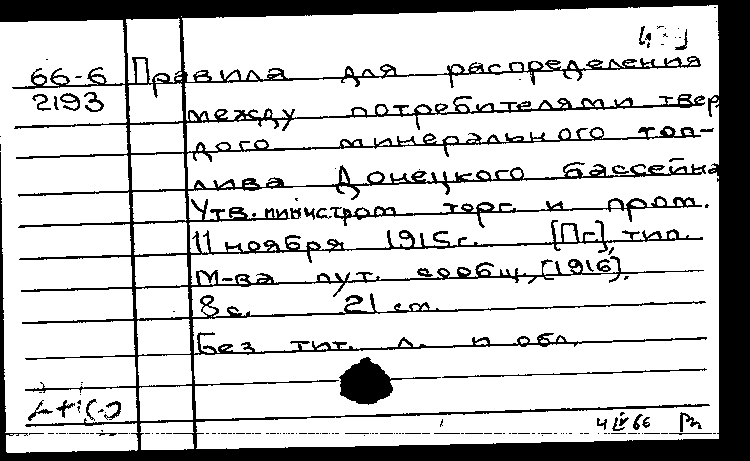 66-6 Правила для распределения
2193 между потребителями твер
дого минерального топ-
лива Донецкого бассейна
Утв. министром торг. и пром.
11 ноября 1915 г. [Пг.], тип.
М-ва пут. сообщ., [1916].
8 с. 21 см.
Без тит. л. и обл.
4 IV 66